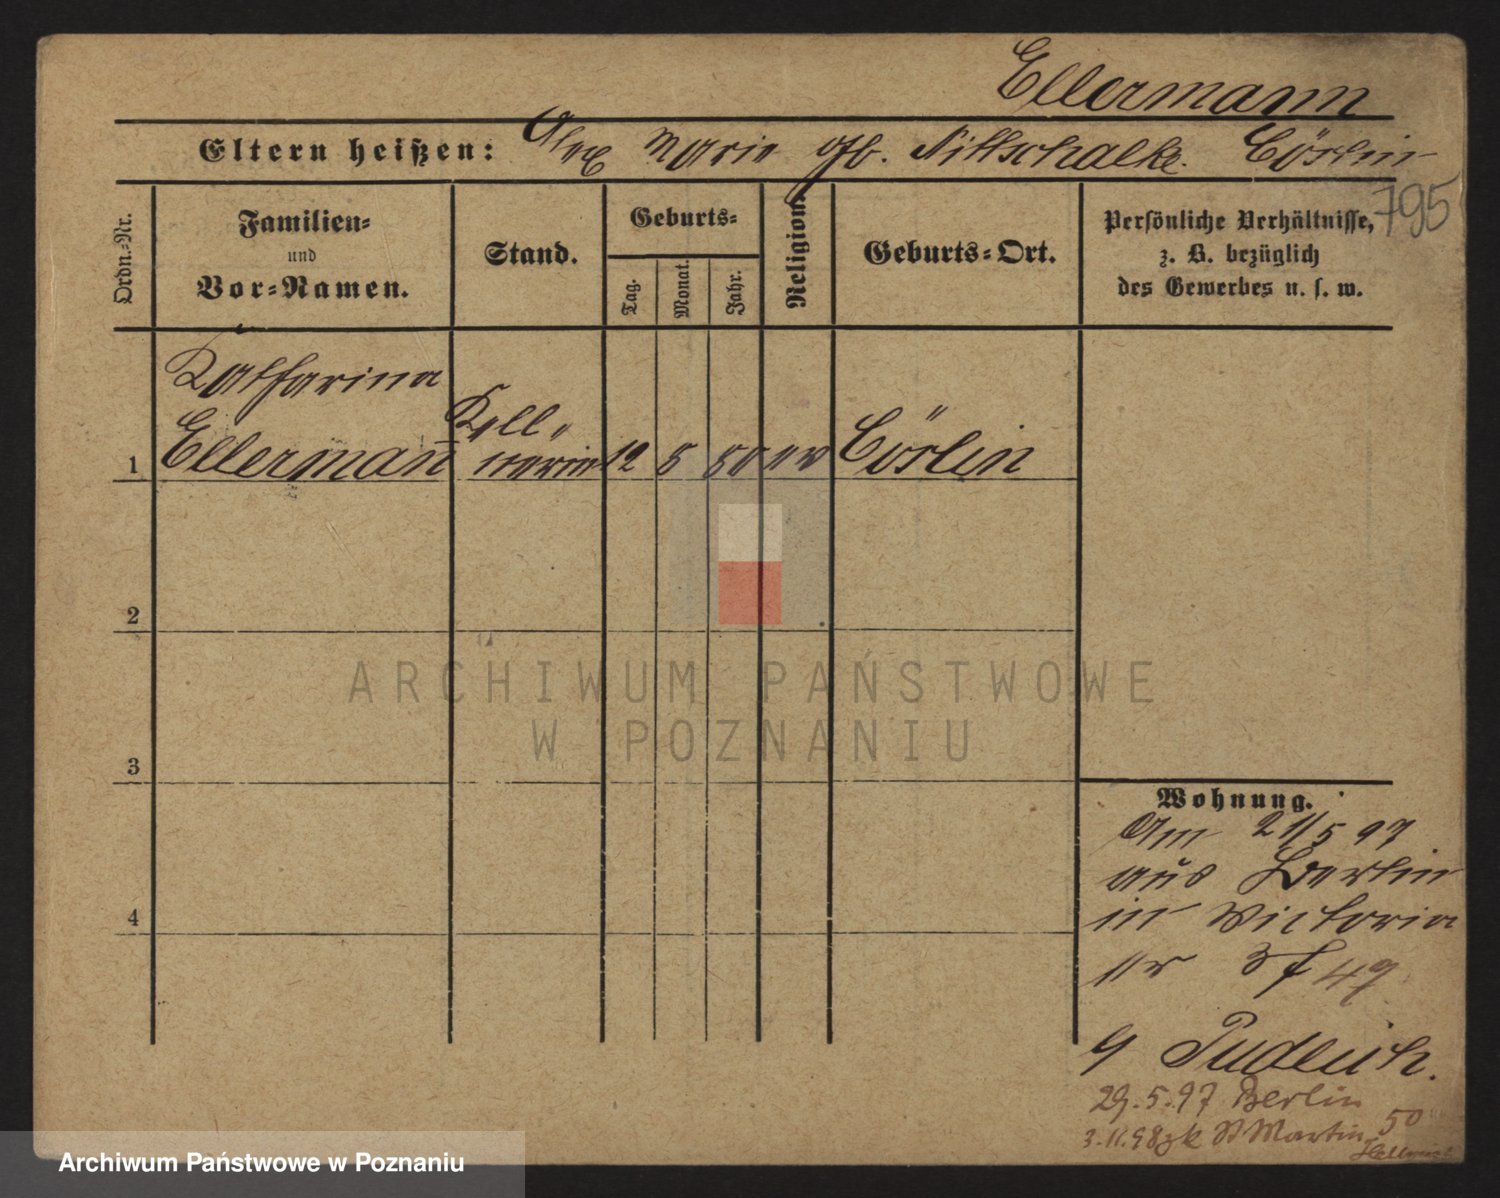 Ellermann
Eltern heißen: Alex Marie gb. Nittschalke. Cörlin
795
Ordn.-Nr.
Familien-
und
Vor-Namen.
Stand.
Geburts-
Tag.
Monat.
Jahr.
Religion.
Geburts-Ort.
Persönliche Verhältnisse,
z. B. bezüglich
des Gewerbes u. s. w.
Katharina
Ellermann
Kell„
nerin
1
12 5 80 ev Cörlin
2
3
4
ARCHIWUM PAŃSTWOWE
W POZNANIU
Wohnung.
Am 21/5 97
aus Berlin
in Victoria
49
29.5.97 Berlin
3.11.98 zk St Martin 50
Archiwum Państwowe w Poznaniu